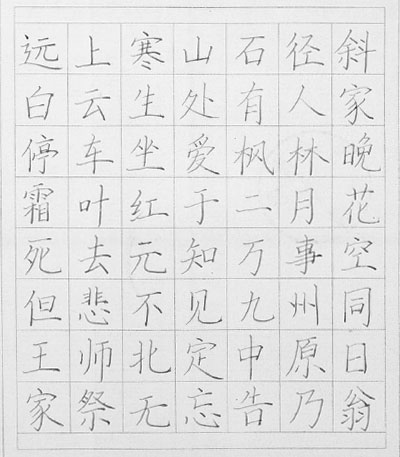 远上寒山石径斜
白云生处有人家
停车坐爱枫林晚
霜叶红于二月花
死去元知万事空
但悲不见九州同
王师北定中原日
家祭无忘告乃翁